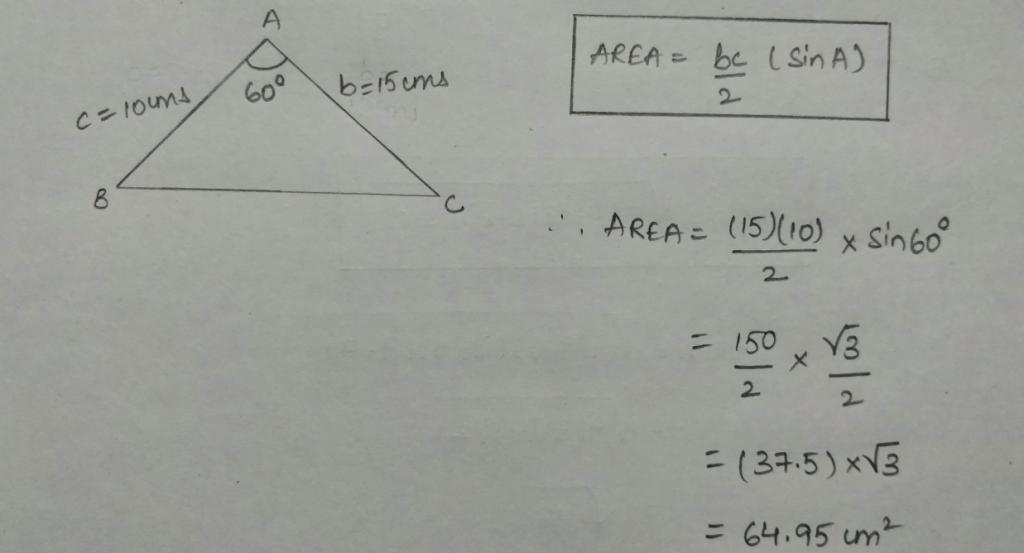 A
60°
c = 10cms
b=15cms
B
C
AREA = bc/2 (sin A)
∴ AREA = (15)(10)/2 × sin60°
= 150/2 × √3/2
= (37.5) × √3
= 64.95 cm²